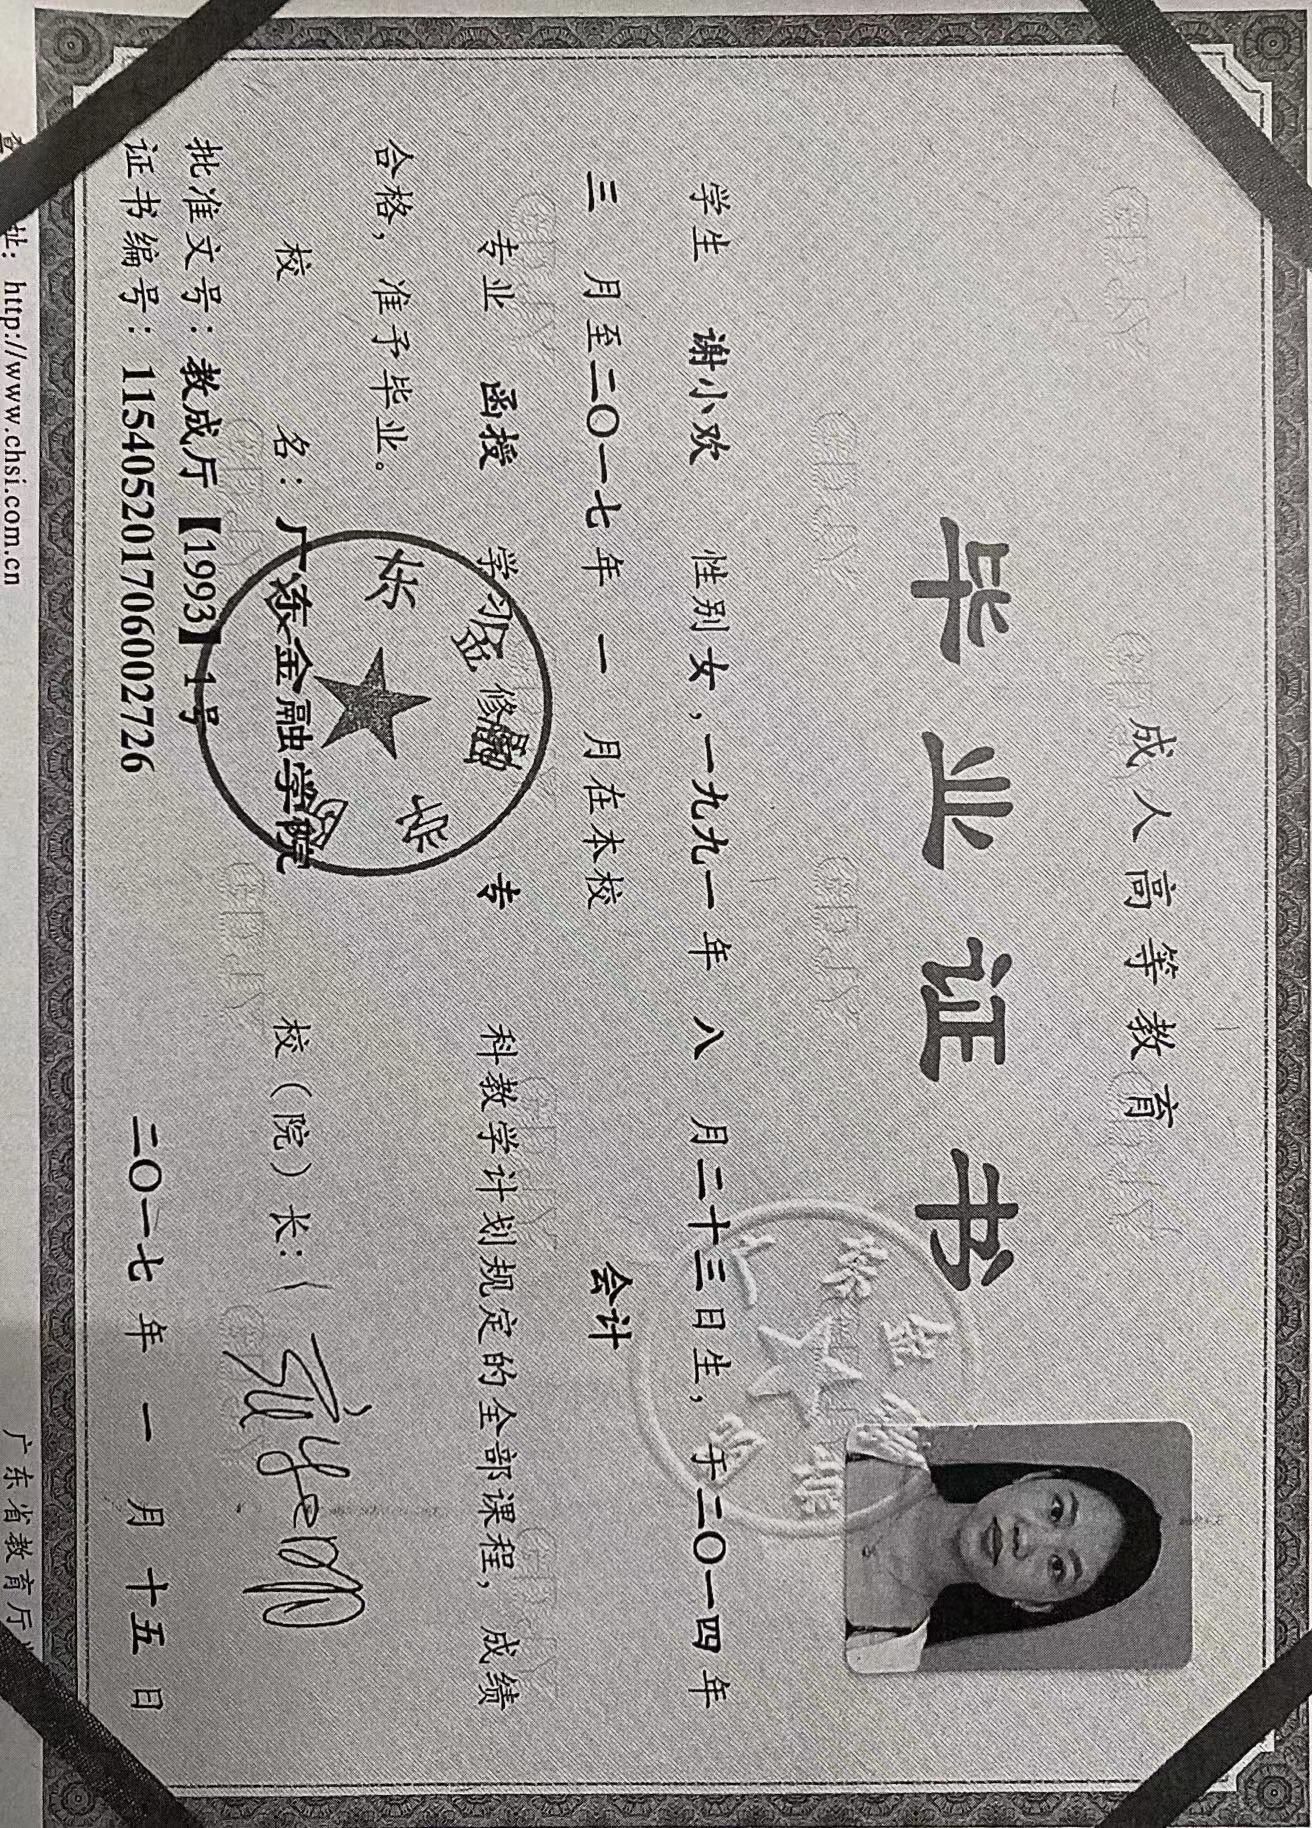 成人高等教育
毕业证书
学生 谢小欢 性别 女，一九九一年 八 月二十三日生，于二〇一四年
三 月至二〇一七年 一 月在本校 会计
专业 函授 学习 修 专 科教学计划规定的全部课程，成绩
合格，准予毕业。
校 名：广东金融学院 校（院）长：
批准文号：教成厅【1993】1号
证书编号：115405201706002726 二〇一七年 一 月十五日
址：http://www.chsi.com.cn 广东省教育厅